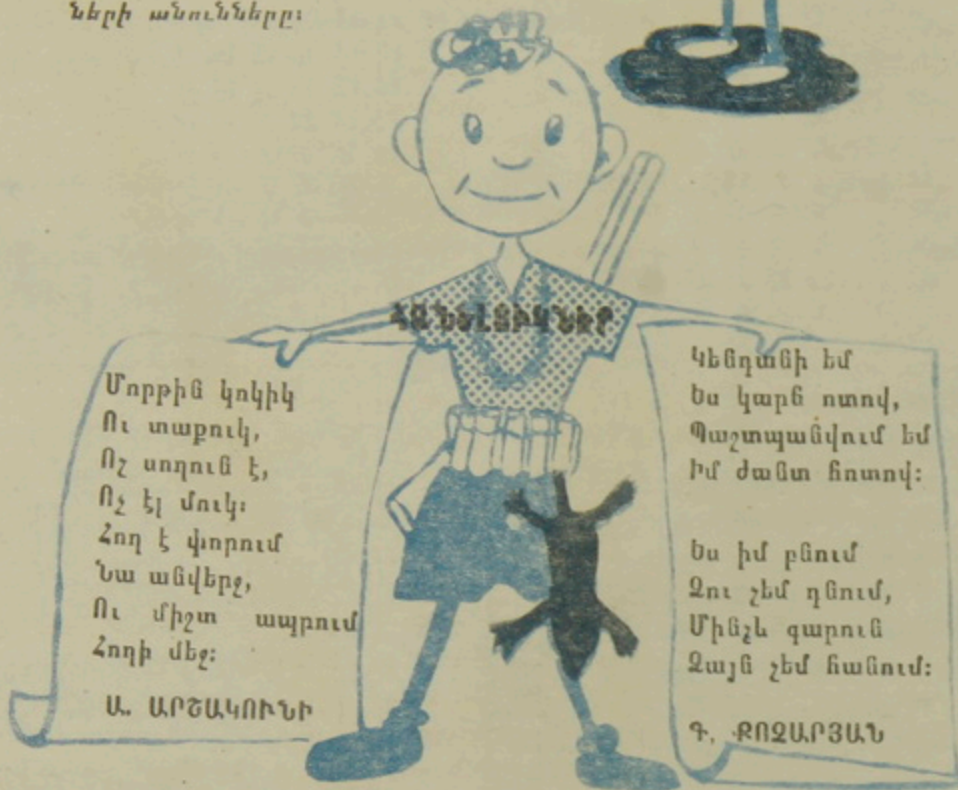 ների անունները։
ՀԱՆԵԼՈՒԿՆԵՐ
Մորթին կոկիկ
Ու տաքուկ,
Ոչ սողուն է,
Ոչ էլ մուկ։
Հող է փորում
Նա անվերջ,
Ու միշտ ապրում
Հողի մեջ։
Ա. ԱՐՇԱԿՈՒՆԻ
Կենդանի եմ
Ես կարճ ոտով,
Պաշտպանվում եմ
Իմ ժանտ հոտով։
Ես իմ բնում
Ձու չեմ դնում,
Մինչև գարուն
Ձայն չեմ հանում։
Գ. ՔՈՉԱՐՅԱՆ